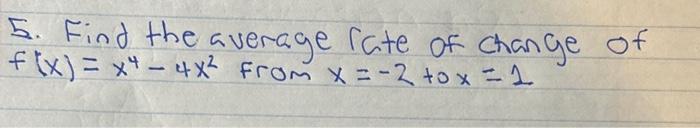 5. Find the average rate of change of
f(x) = x⁴ - 4x² from x = -2 to x = 1